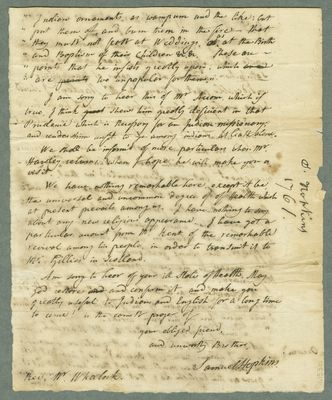 Indian ornaments, as wampum and the like; but
put them off and burn them in the fire — that
they must not feast at Weddings, at the Birth
and Baptism of their Children &c. These are
points that he insists greatly upon, which
are too unpopular for them.
I am sorry to hear this of Mr. which if
true I think shows him greatly deficient in that
Prudence which is necessary for an Indian missionary,
and renders him unfit to go among indians, at least alone.
We shall be informed of more particulars when Mr.
Hawley returns, when I hope he will make you a
visit.
We have nothing remarkable here, except it be
the universal and uncommon degree of health which
at present prevails among us. I have nothing to say
about any new religious appearances. I have got a
particular account from Mr. Kent of the remarkable
revival among his people, in order to transmit it to
Mr. Gillies in Scotland.
Am sorry to hear of your ill State of health. May
God restore and confirm it, and make you
greatly useful to Indians and English for a long time
to come is the constant prayer of
your obliged friend,
and unworthy Brother,
Samuel Hopkins
Rev. Mr. Whelock.
S. Hopkins
1761